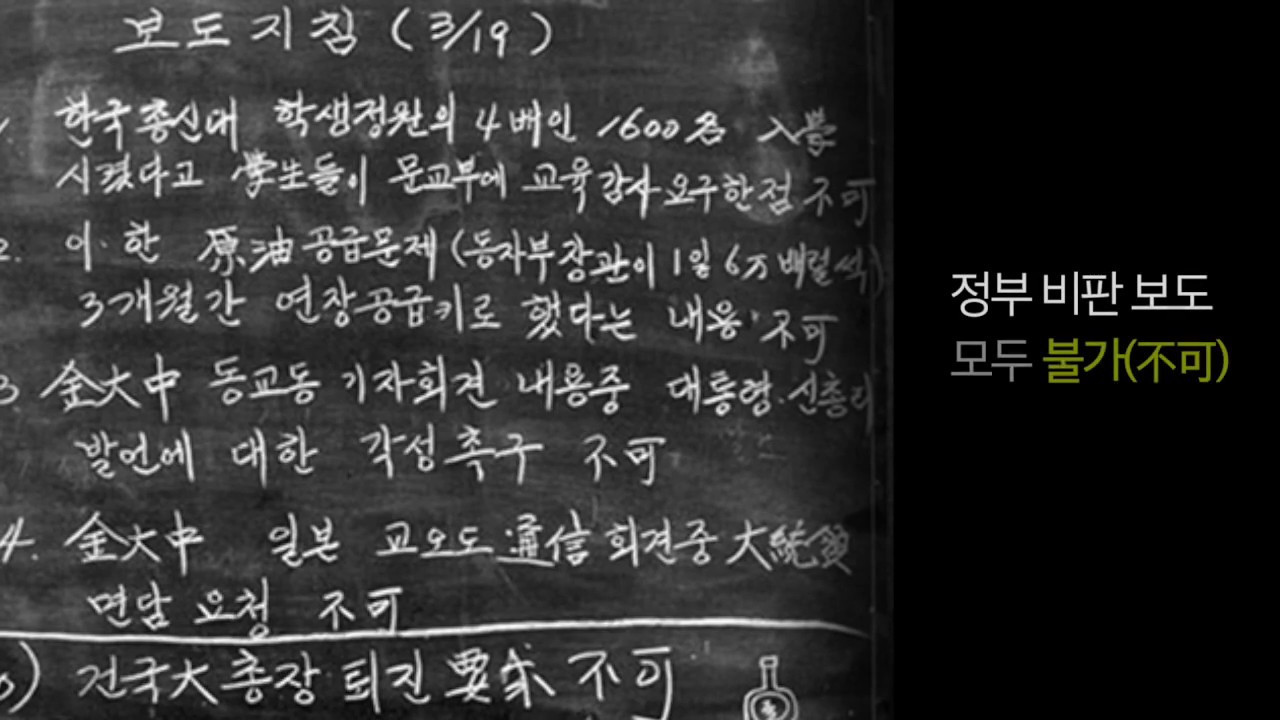 보도지침 (3/19)
한국종신대 학생정원의 4배인 1600名 入學
시켰다고 學生들이 문교부에 교육감사 요구한점 不可
2. 이·한 原油 공급문제 (동자부장관이 1일 6万 배럴씩)
3개월간 연장공급키로 했다는 내용 不可
3 金大中 동교동 기자회견 내용중 대통령·신총리
발언에 대한 각성촉구 不可
4. 金大中 일본 교오도 通信 회견중 大統領
면담 요청 不可
) 건국大 총장 퇴진 要求 不可
정부 비판 보도
모두 불가(不可)